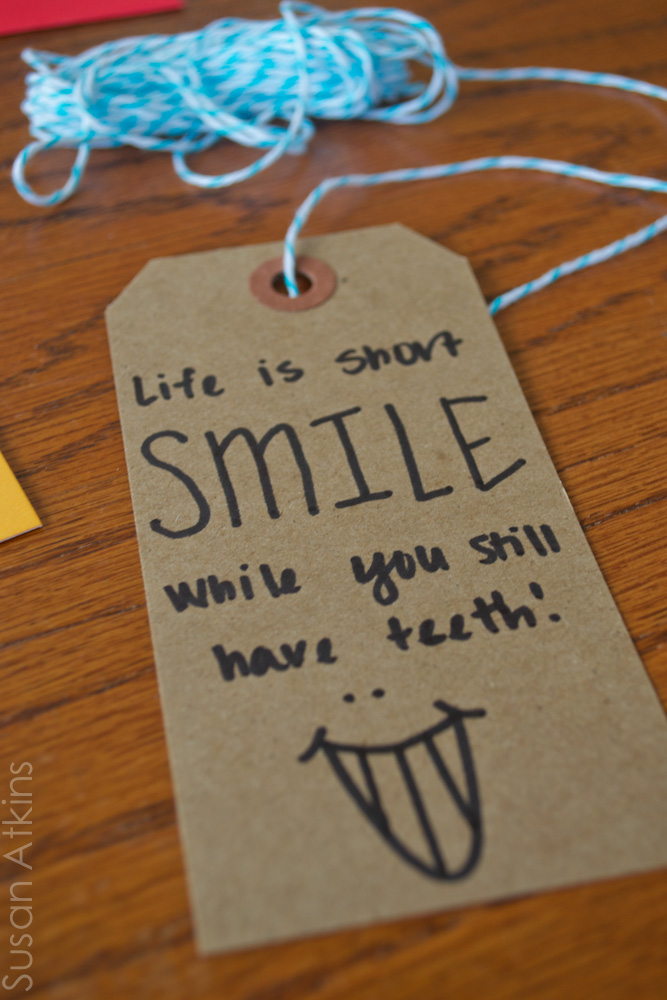 Life is short
SMILE
while you still
have teeth!
Susan Atkins